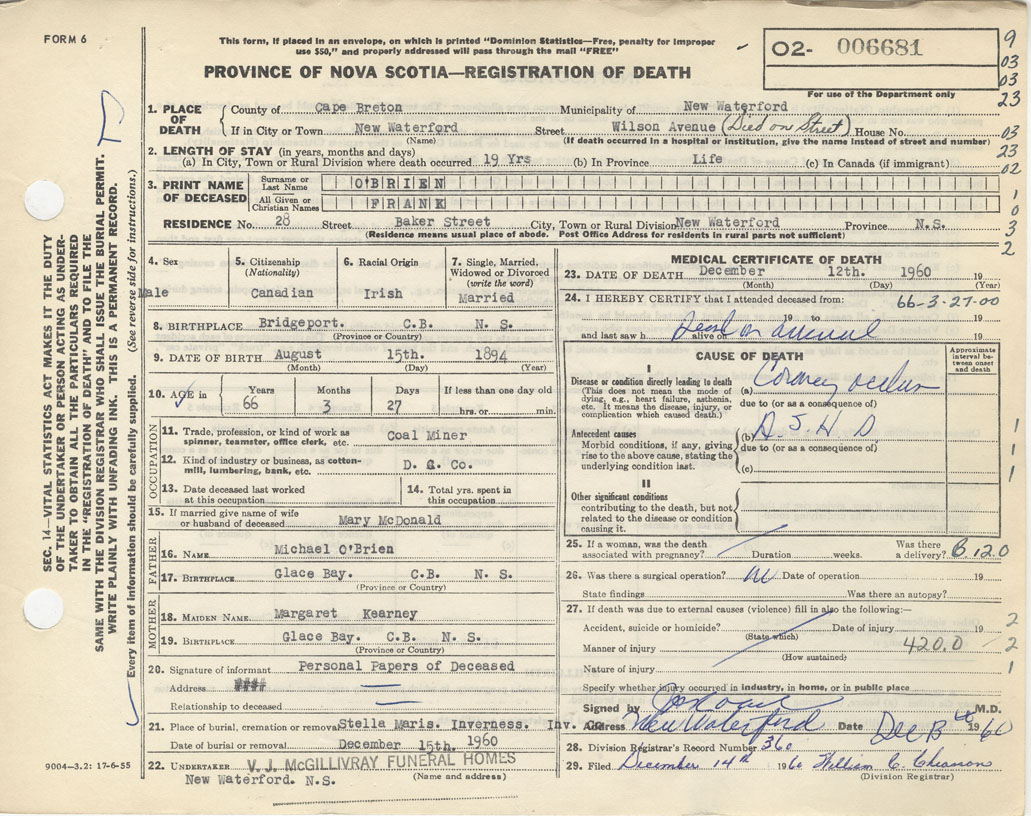 FORM 6
This form, if placed in an envelope, on which is printed "Dominion Statistics—Free, penalty for improper
use $50," and properly addressed will pass through the mail "FREE"
PROVINCE OF NOVA SCOTIA—REGISTRATION OF DEATH
02- 006681
For use of the Department only
9
03
03
23
03
23
02
1
0
3
2
SEC. 14—VITAL STATISTICS ACT MAKES IT THE DUTY
OF THE UNDERTAKER OR PERSON ACTING AS UNDER-
TAKER TO OBTAIN ALL THE PARTICULARS REQUIRED
IN THE "REGISTRATION OF DEATH" AND TO FILE THE
SAME WITH THE DIVISION REGISTRAR WHO SHALL ISSUE THE BURIAL PERMIT.
WRITE PLAINLY WITH UNFADING INK. THIS IS A PERMANENT RECORD.
Every item of information should be carefully supplied. (See reverse side for instructions.)
1. PLACE OF DEATH
County of Cape Breton Municipality of New Waterford
If in City or Town New Waterford Street Wilson Avenue (Died on Street) House No.
(Name) (If death occurred in a hospital or institution, give the name instead of street and number)
2. LENGTH OF STAY (in years, months and days)
(a) In City, Town or Rural Division where death occurred 19 Yrs (b) In Province Life (c) In Canada (if immigrant)
3. PRINT NAME OF DECEASED
Surname or Last Name O'BRIEN
All Given or Christian Names FRANK
RESIDENCE No. 28 Street Baker Street City, Town or Rural Division New Waterford Province N.S.
(Residence means usual place of abode. Post Office Address for residents in rural parts not sufficient)
4. Sex Male
5. Citizenship (Nationality) Canadian
6. Racial Origin Irish
7. Single, Married, Widowed or Divorced (write the word) Married
8. BIRTHPLACE Bridgeport. C.B. N. S.
(Province or Country)
9. DATE OF BIRTH August 15th. 1894
(Month) (Day) (Year)
10. AGE in Years Months Days If less than one day old
66 3 27 hrs. or min.
OCCUPATION
11. Trade, profession, or kind of work as spinner, teamster, office clerk, etc. Coal Miner
12. Kind of industry or business, as cotton-mill, lumbering, bank, etc. D. C. Co.
13. Date deceased last worked at this occupation
14. Total yrs. spent in this occupation
15. If married give name of wife or husband of deceased Mary McDonald
FATHER
16. NAME Michael O'Brien
17. BIRTHPLACE Glace Bay. C.B. N. S.
(Province or Country)
MOTHER
18. MAIDEN NAME Margaret Kearney
19. BIRTHPLACE Glace Bay. C.B. N. S.
(Province or Country)
20. Signature of informant Personal Papers of Deceased
Address
Relationship to deceased
21. Place of burial, cremation or removal Stella Maris. Inverness. Inv. Co
Date of burial or removal December 15th. 1960
22. UNDERTAKER V. J. McGILLIVRAY FUNERAL HOMES
New Waterford. N.S. (Name and address)
9004—3.2: 17-6-55
MEDICAL CERTIFICATE OF DEATH
23. DATE OF DEATH December 12th. 1960 19
(Month) (Day) (Year)
24. I HEREBY CERTIFY that I attended deceased from: 66-3-27-00
19 to
and last saw h alive on 19
Dead on arrival
CAUSE OF DEATH
Approximate interval between onset and death
I
Disease or condition directly leading to death
(This does not mean the mode of dying, e.g., heart failure, asthenia, etc. It means the disease, injury, or complication which caused death.)
(a) Coronary occlus
due to (or as a consequence of)
Antecedent causes
Morbid conditions, if any, giving rise to the above cause, stating the underlying condition last.
(b) A. S. H. D
due to (or as a consequence of)
(c)
1
1
1
II
Other significant conditions
contributing to the death, but not related to the disease or condition causing it.
25. If a woman, was the death associated with pregnancy? Duration weeks. Was there a delivery? B 12.0
26. Was there a surgical operation? no Date of operation 19
State findings Was there an autopsy?
27. If death was due to external causes (violence) fill in also the following:—
Accident, suicide or homicide? Date of injury 19
(State which)
Manner of injury 420.0
(How sustained)
Nature of injury
2
2
1
Specify whether injury occurred in industry, in home, or in public place
Signed by M.D.
Address New Waterford Date Dec 13 1960
28. Division Registrar's Record Number 360
29. Filed December 14th 1960 William C. Chiasson
(Division Registrar)